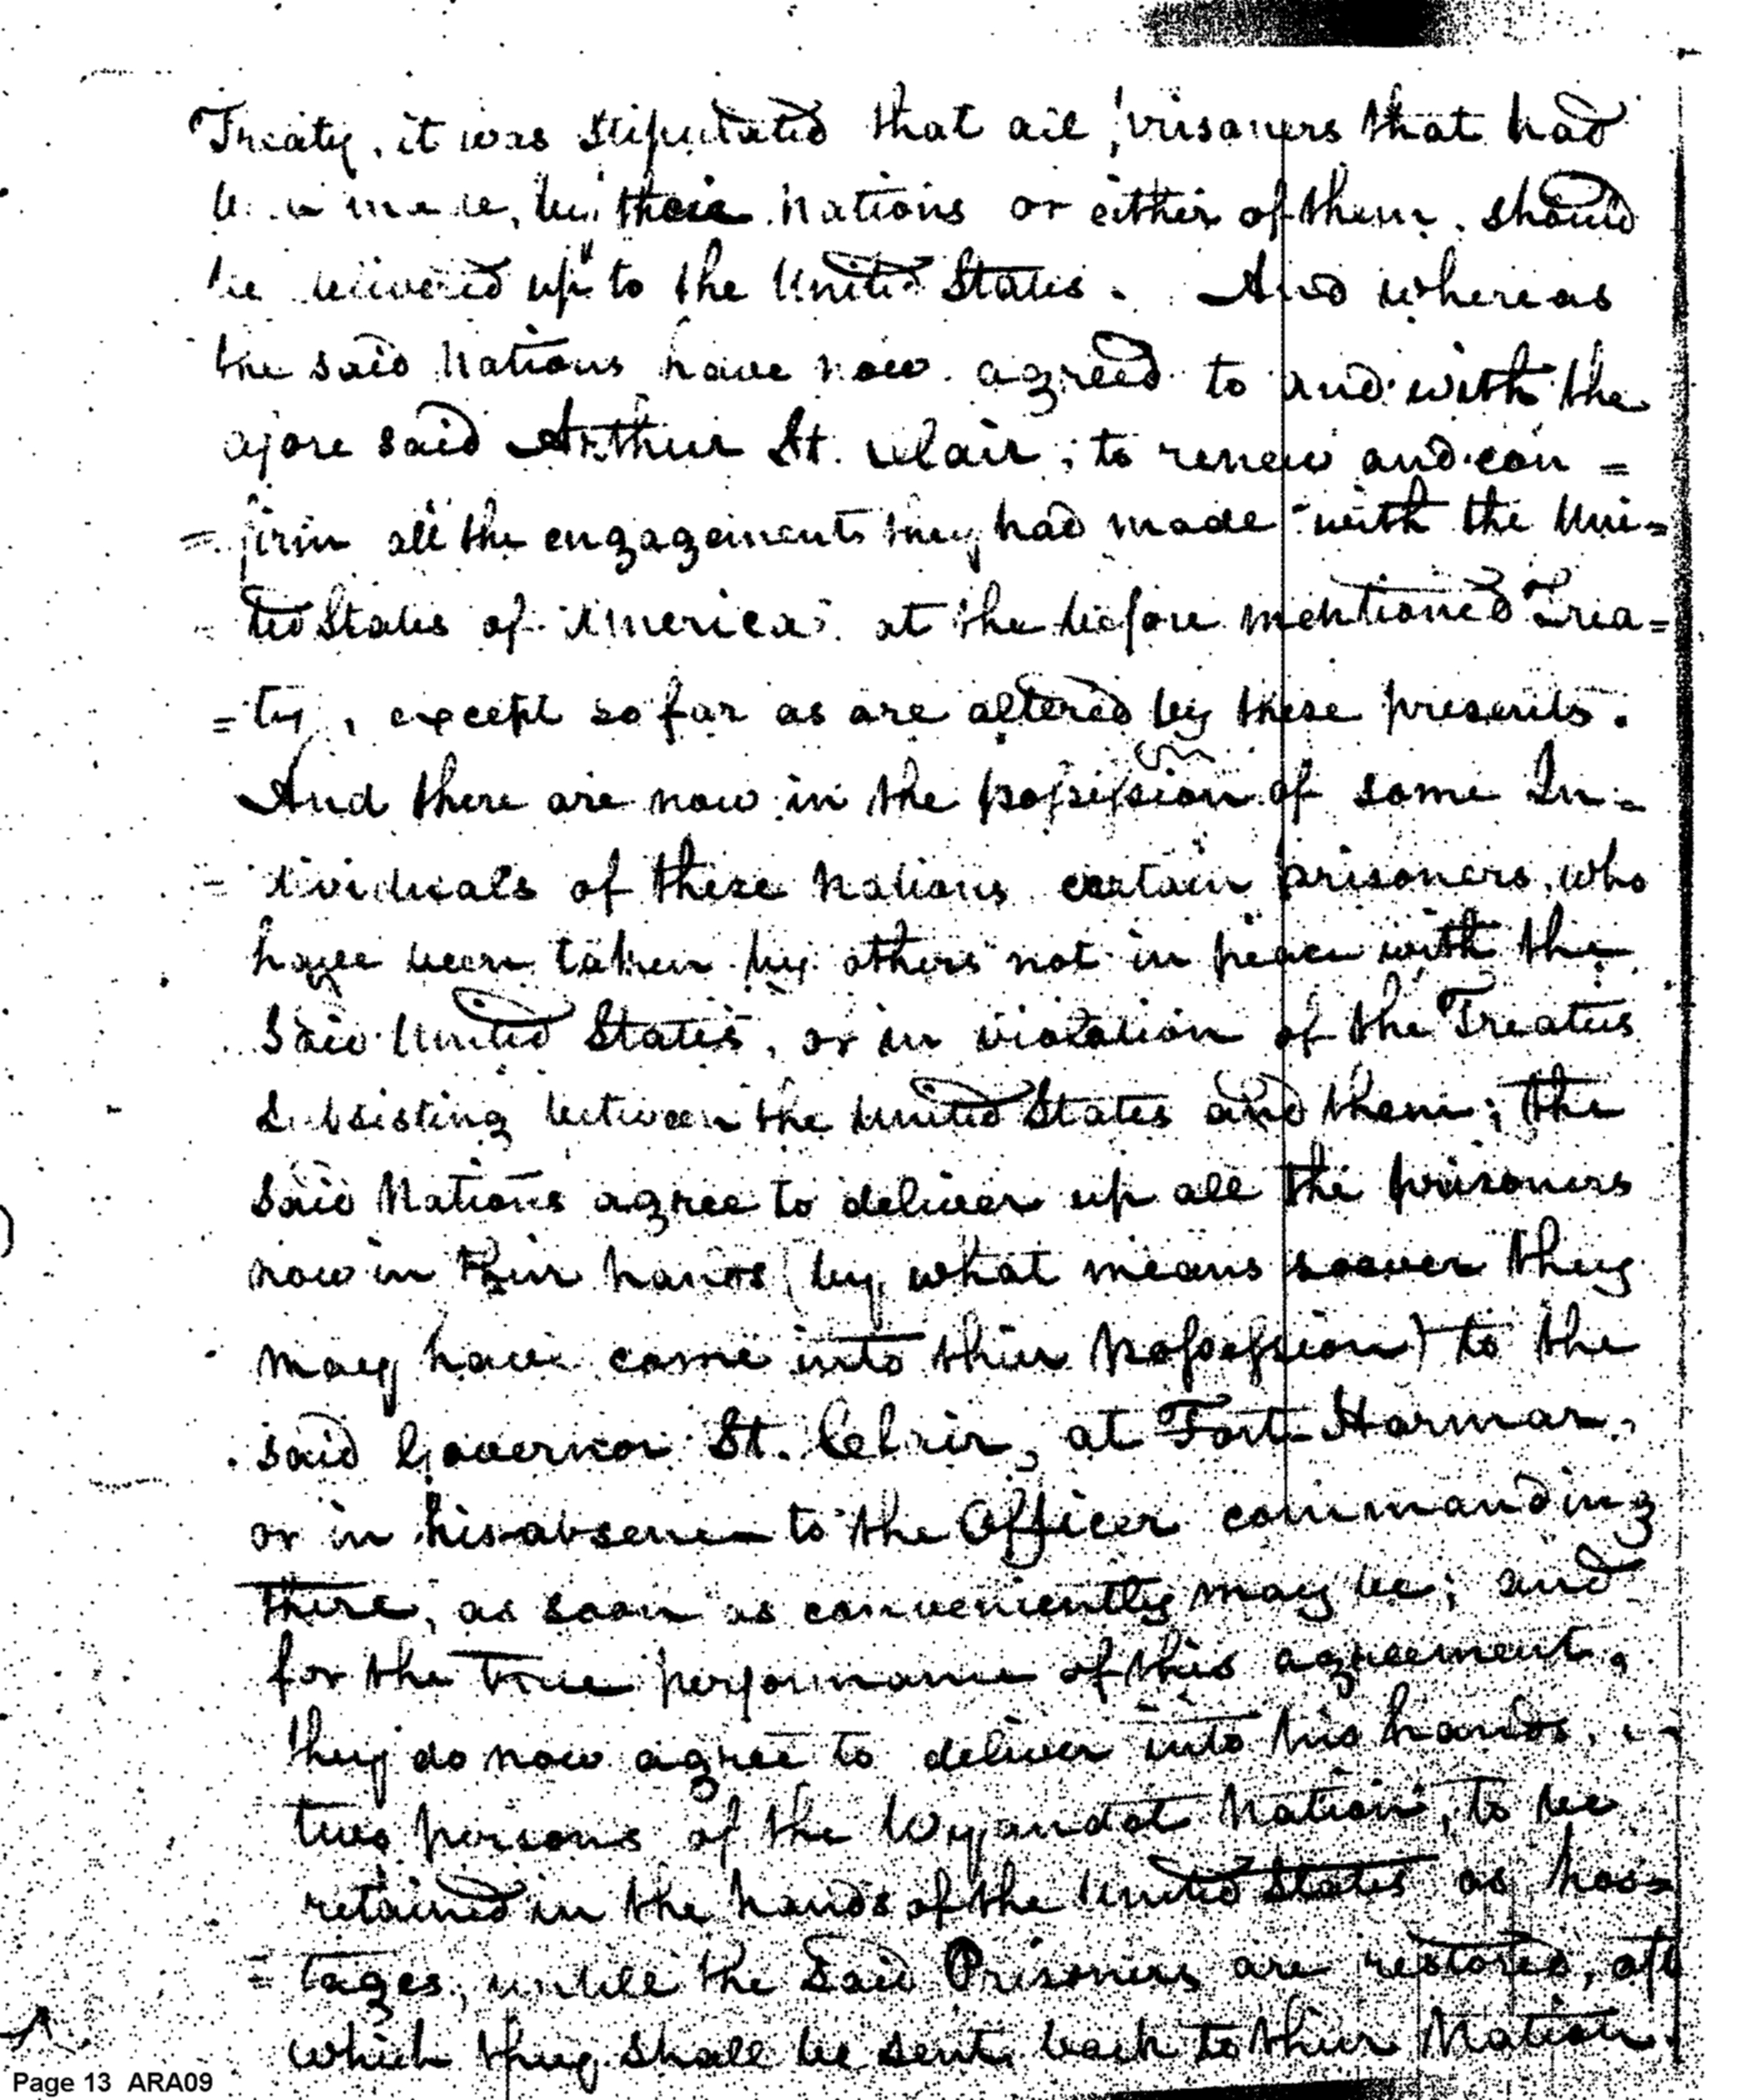 Treaty, it was stipulated that all prisoners that had
been made, by these Nations or either of them, should
be delivered up to the United States. And whereas
the said Nations have now agreed to and with the
afore said Arthur St. Clair, to renew and con =
= firm all the engagements they had made with the Uni=
- ted States of America at the before mentioned Trea=
= ty, except so far as are altered by these presents.
And there are now in the possession of some In =
- dividuals of these Nations certain prisoners, who
have been taken by others not in peace with the
Said United States, or in violation of the Treaties
Subsisting between the United States and them; the
Said Nations agree to deliver up all the prisoners
now in their hands (by what means soever they
may have come into their possession) to the
said Governor St. Clair, at Fort Harmar,
or in his absence to the Officer commanding
there, as soon as conveniently may be; and
for the true performance of this agreement,
they do now agree to deliver into his hands,
two persons of the Wyandot Nation, to be
retained in the hands of the United States as hos=
= tages, untill the Said Prisoners are restored, aft
which they shall be sent back to their Nation.
Page 13 ARA09